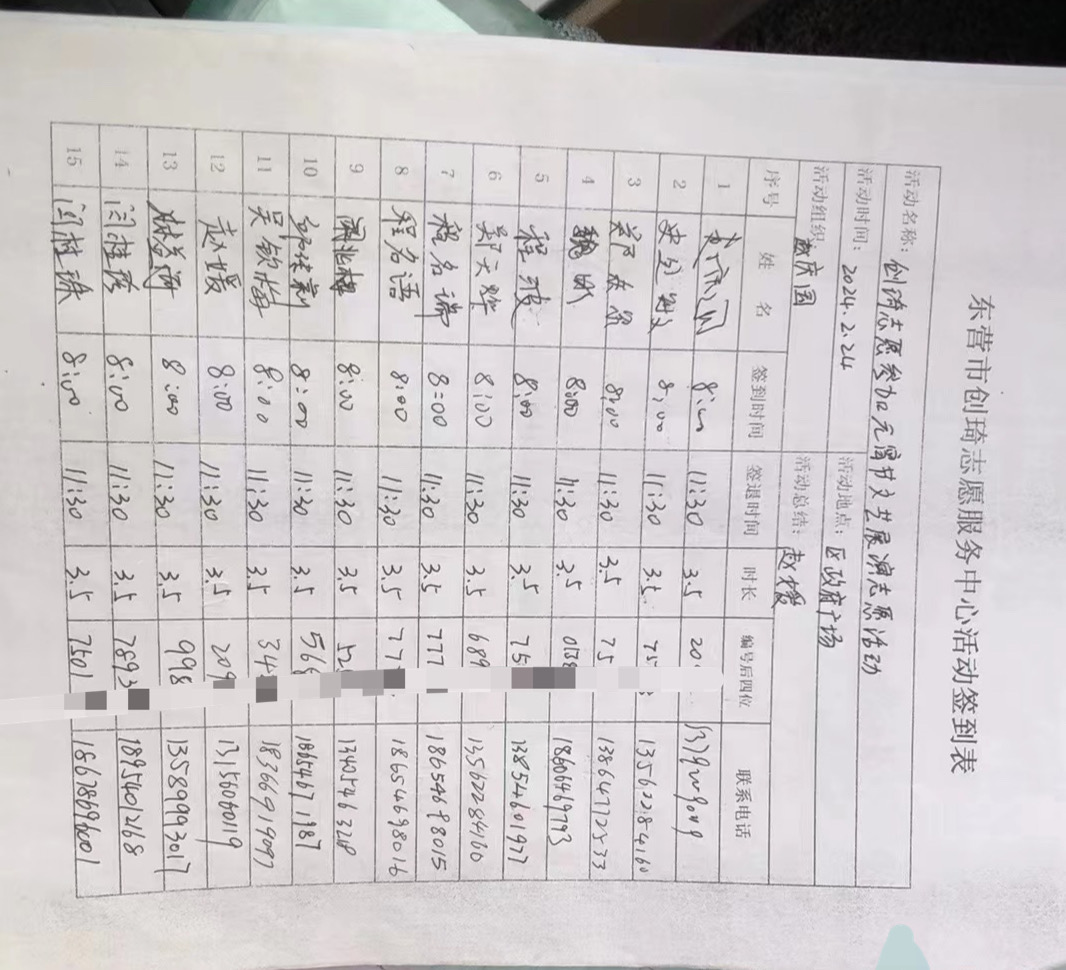 东营市创琦志愿服务中心活动签到表
活动名称: 创琦志愿参加元宵节文艺展演志愿活动
活动时间: 2024.2.24 活动地点: 区政府广场
活动组织: 庆国 活动总结: 赵媛
序号 姓 名 签到时间 签退时间 时长 编号后四位 联系电话
1 8:00 11:30 3.5 20
2 8:00 11:30 3.5 75 13562284160
3 8:00 11:30 3.5 75 13864772533
4 8:00 11:30 3.5 013 18606469793
5 程 8:00 11:30 3.5 75 13854601977
6 郭天烨 8:00 11:30 3.5 689 13562284160
7 程名瑞 8:00 11:30 3.5 777 18654698015
8 程名语 8:00 11:30 3.5 77 18654698016
9 8:00 11:30 3.5 52 13405463218
10 8:00 11:30 3.5 568 18654671987
11 吴钦梅 8:00 11:30 3.5 34 18366919097
12 赵媛 8:00 11:30 3.5 209 13156060119
13 8:00 11:30 3.5 998 13589993017
14 闫桂 8:00 11:30 3.5 7893 18954012168
15 闫桂珠 8:00 11:30 3.5 7501 18678696001